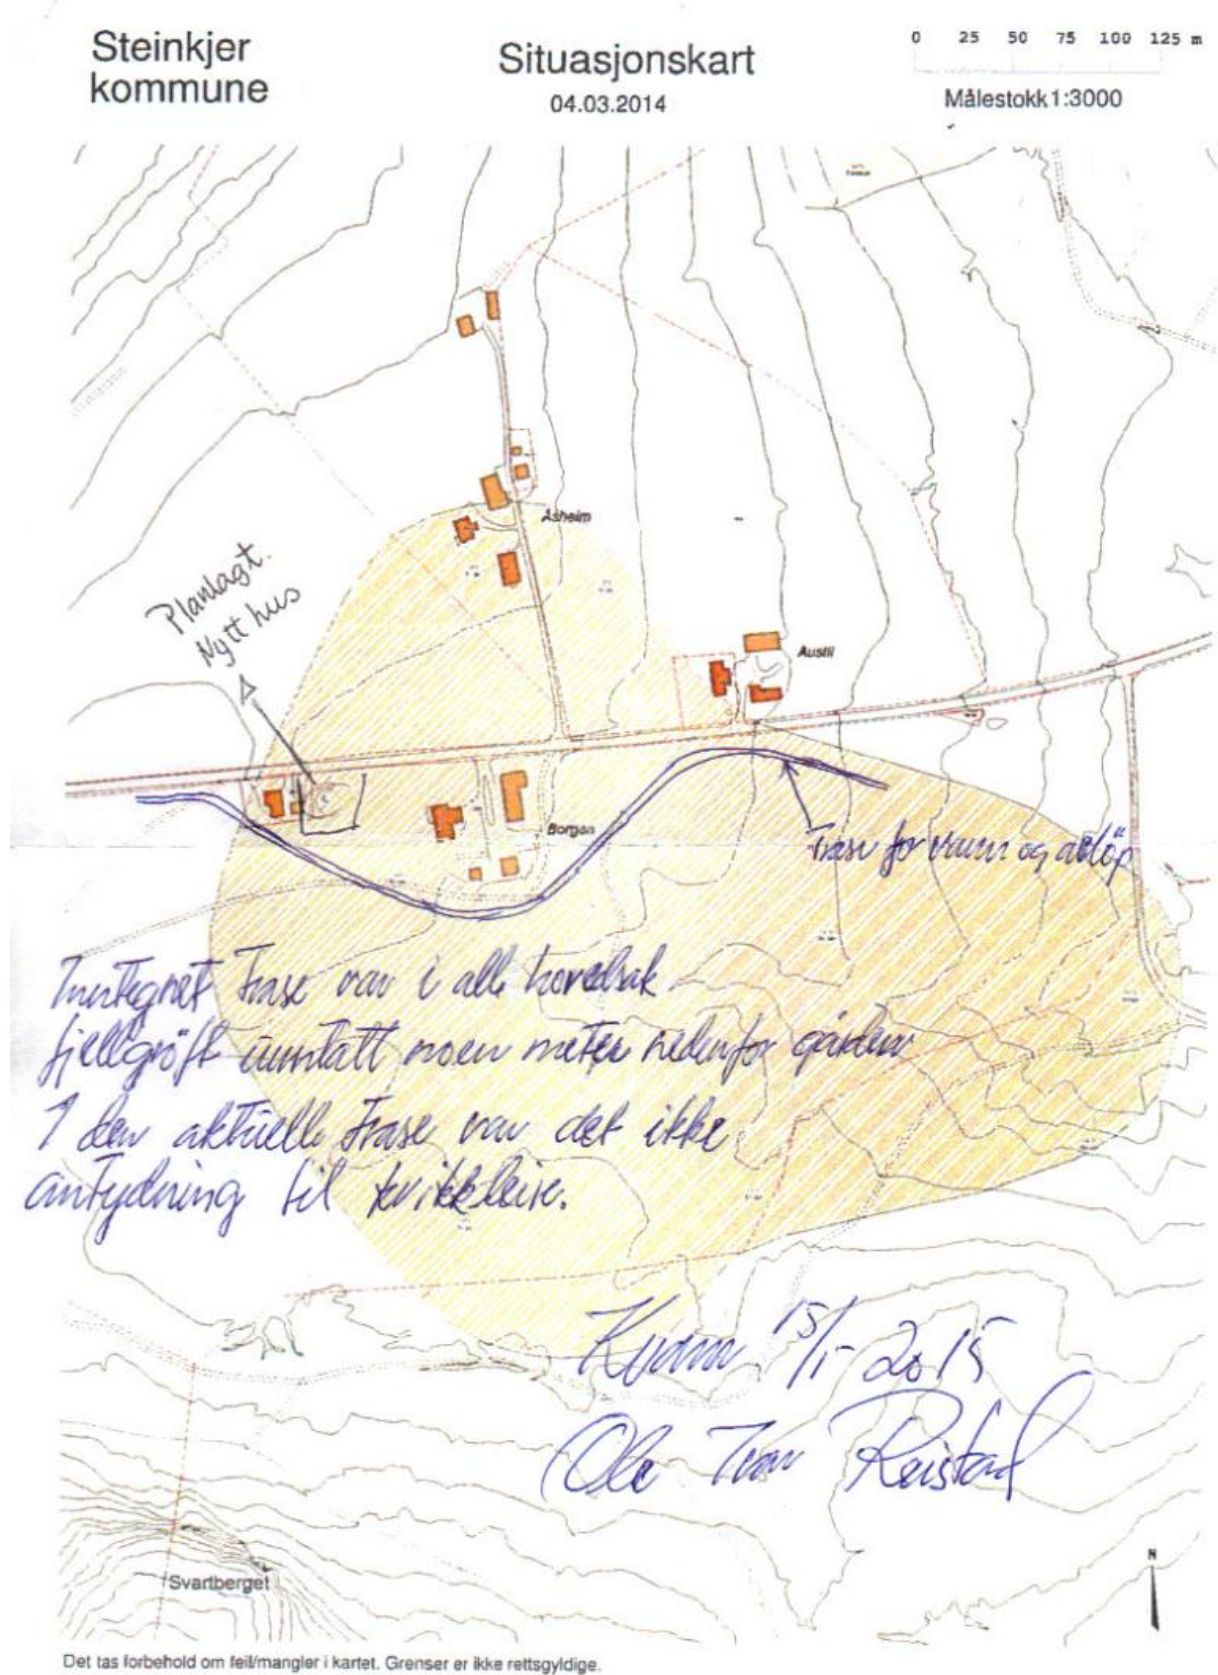 Steinkjer
kommune
Situasjonskart
04.03.2014
0 25 50 75 100 125 m
Målestokk 1:3000
Åsheim
Planlagt.
Nytt hus
Austli
Borgan
Trase for vann og avløp
Inntegnet trase var i all hovedsak
fjellgröft unntatt noen meter nedenfor gården
I den aktuelle trase var det ikke
antydning til kvikkleire.
Kvam 15/1-2015
Ole Ivar Reistad
Svartberget
N
Det tas forbehold om feil/mangler i kartet. Grenser er ikke rettsgyldige.